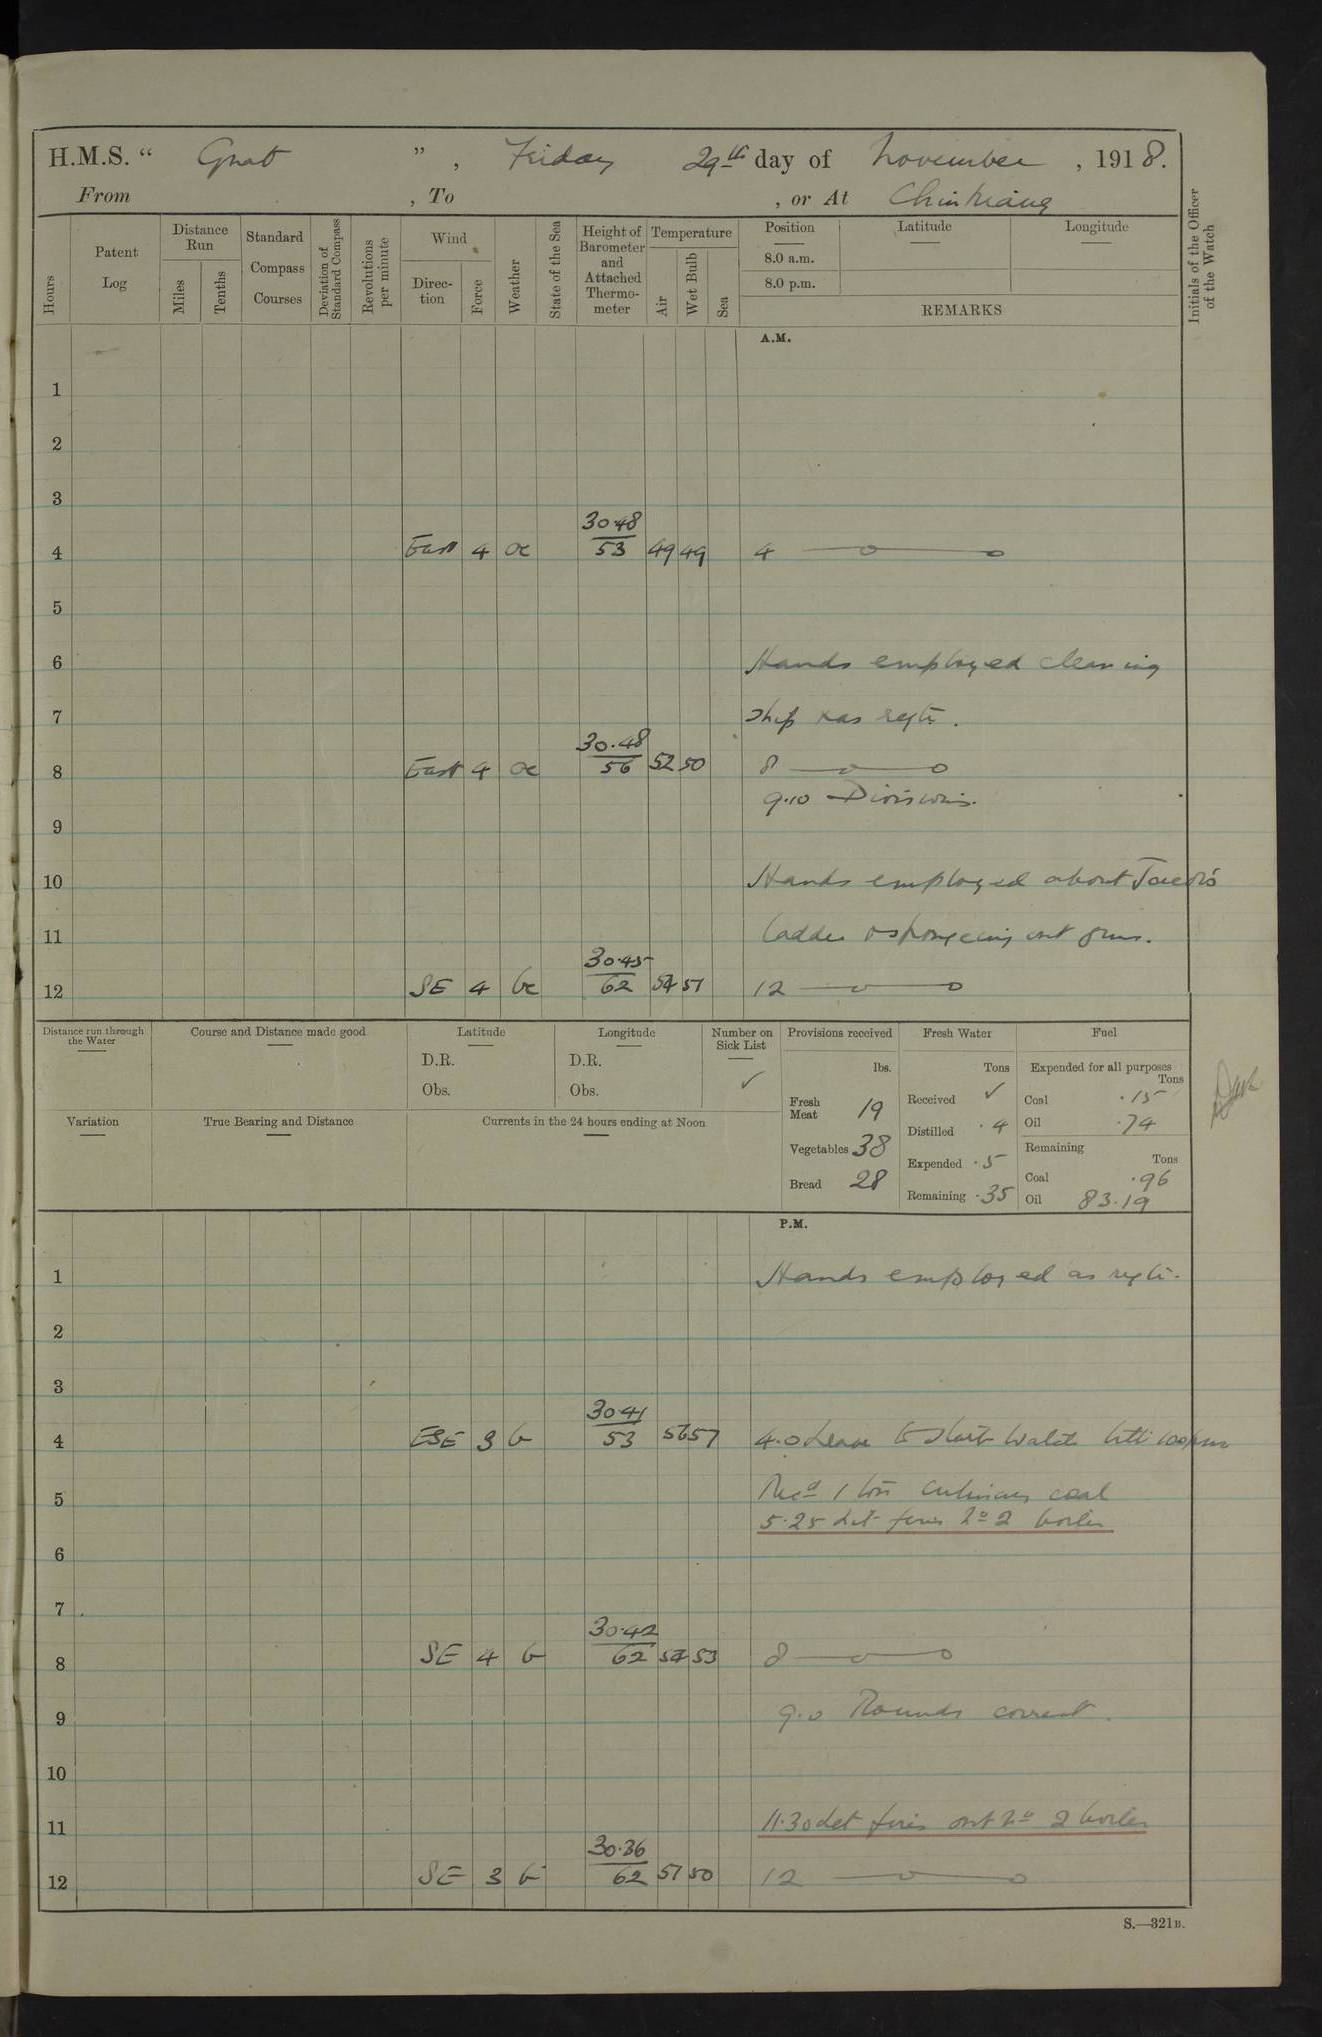 H.M.S. “ Gnat ” , Friday 29th day of November , 1918.
From , To , or At Chinkiang
Hours
Patent Log
Distance Run
Miles
Tenths
Standard Compass Courses
Deviation of Standard Compass
Revolutions per minute
Wind
Direc-tion
Force
Weather
State of the Sea
Height of Barometer and Attached Thermo-meter
Temperature
Air
Wet Bulb
Sea
Position
8.0 a.m.
8.0 p.m.
Latitude
Longitude
REMARKS
Initials of the Officer of the Watch
A.M.
1
2
3
30.48
4 East 4 oc 53 49 49 4
5
6 Hands employed cleaning
7 ship & as reqte.
30.48
8 East 4 oc 56 52 50 8
9.10 Divisions.
9
10 Hands employed about
11 ladder & spongeing out guns.
30.45
12 SE 4 bc 62 54 51 12
Distance run through the Water
Course and Distance made good
Latitude
D.R.
Obs.
Longitude
D.R.
Obs.
Number on Sick List
✓
Provisions received
lbs.
Fresh Meat 19
Vegetables 38
Bread 28
Fresh Water
Tons
Received ✓
Distilled .4
Expended .5
Remaining .35
Fuel
Expended for all purposes
Tons
Coal .15
Oil .74
Remaining
Tons
Coal .96
Oil 83.19
Variation
True Bearing and Distance
Currents in the 24 hours ending at Noon
P.M.
1 Hands employed as reqte.
2
3
30.41
4 ESE 3 b 53 56 57 4.0 Leave to Starb Watch
5 Recd 1 ton culinary coal
5.25 Lit fires No 2 boiler
6
7
30.42
8 SE 4 b 62 54 53 8
9 9.0 Rounds correct.
10
11 11.30 Let fires out No 2 boiler
30.36
12 SE 3 b 62 51 50 12
S.—321B.